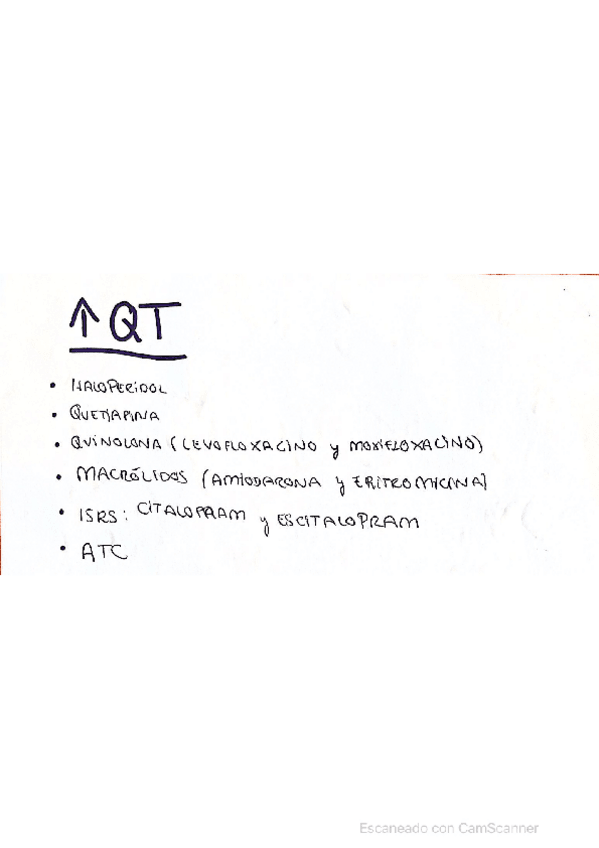 ↑ QT
• HALOPERIDOL
• QUETIAPINA
• QUINOLONA (LEVOFLOXACINO y MOXIFLOXACINO)
• MACRÓLIDOS (AMIODARONA y ERITROMICINA)
• ISRS: CITALOPRAM y ESCITALOPRAM
• ATC
Escaneado con CamScanner